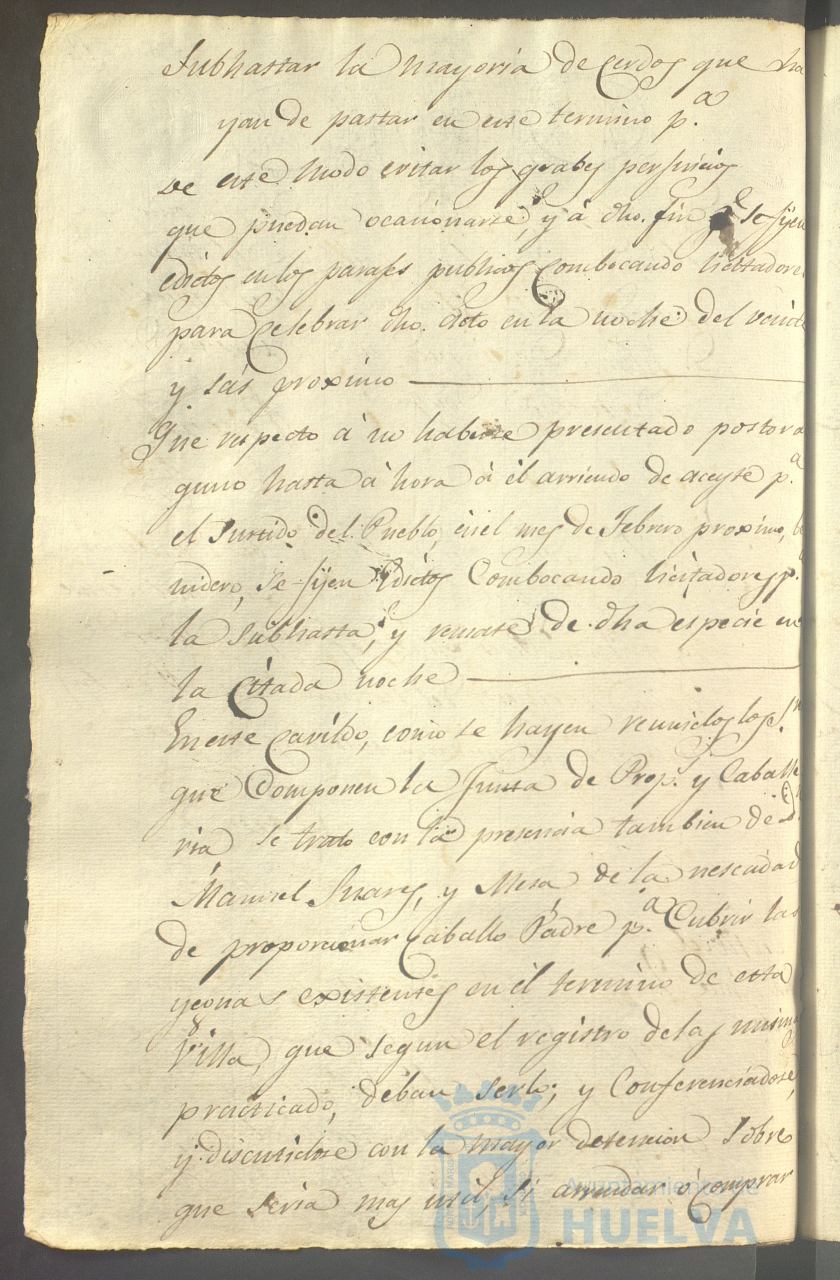 Subhastar la mayoria de Cerdos que ha
yan de pastar en este termino p.ª
de este modo evitar los grabes perjuicios
que puedan ocacionarse, y á dho. fin se fijen
edictos en los parajes publicos combocando licitadores
para Celebrar dho. Acto en la noche del veinte
y seis proximo
Que respecto á no haberse presentado postor a
guno hasta ahora á el arriendo de aceyte p.ª
el Surtido del Pueblo, en el mes de Febrero proximo, be
nidero, Se fijen Edictos Combocando licitadores p.ª
la Subhasta, y remate de dha especie en
la Citada noche
En este Cavildo, como se hayen reunidos los S.res
que Componen la Junta de Prop.s y Caballe
ria se trato con la presencia tambien de D.n
Manuel Suares, y Mesa de la nescesidad
de proporcionar Caballo Padre p.ª Cubrir las
yeguas existentes en el termino de esta
Villa, que segun el registro de las mismas
practicado, deban serlo, y Conferenciadose,
y discutidose con la mayor detencion Sobre
que seria mas util, si arrendar ó comprar
Ayuntamiento de
HUELVA